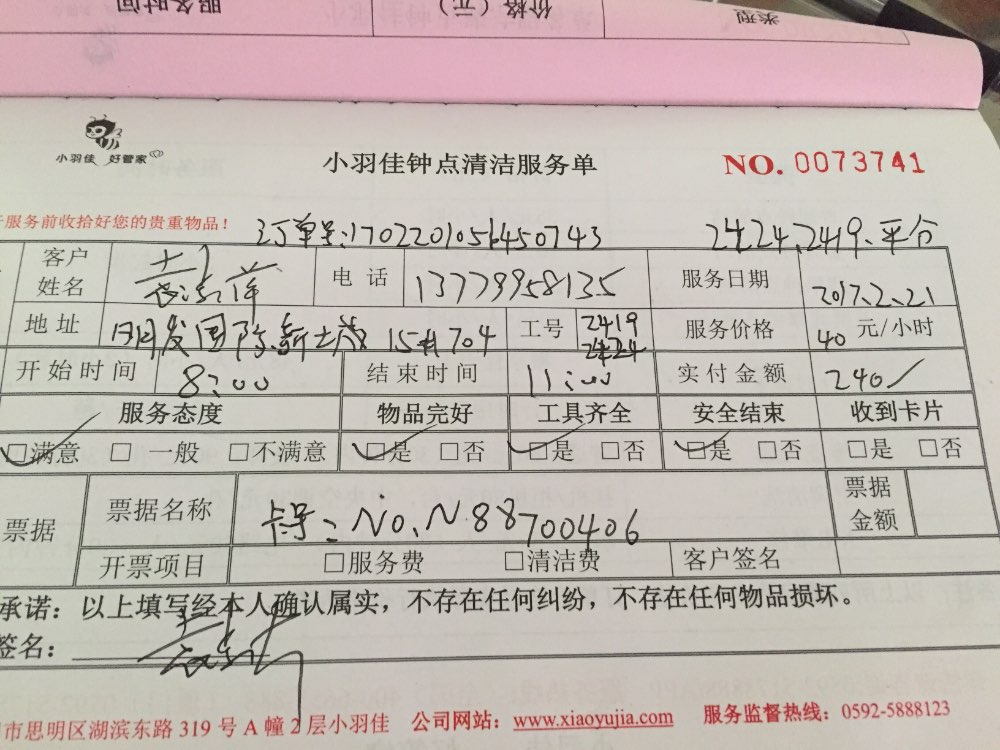 服务时间 价格（元） 类型
小羽佳 好管家
小羽佳钟点清洁服务单 NO. 0073741
服务前收拾好您的贵重物品！ 订单号:1702201056450743 2424、2419、平台
客户姓名 电话 13779958135 服务日期 2017.2.21
地址 明发国际新城 15#704 工号 2419 2424 服务价格 40 元/小时
开始时间 8:00 结束时间 11:00 实付金额 240
服务态度 物品完好 工具齐全 安全结束 收到卡片
☑满意 □一般 □不满意 ☑是 □否 ☑是 □否 ☑是 □否 □是 □否
票据 票据名称 卡号：No.N88700406 票据金额
开票项目 □服务费 □清洁费 客户签名
承诺：以上填写经本人确认属实，不存在任何纠纷，不存在任何物品损坏。
签名：
市思明区湖滨东路 319 号 A 幢 2 层小羽佳 公司网站：www.xiaoyujia.com 服务监督热线：0592-5888123